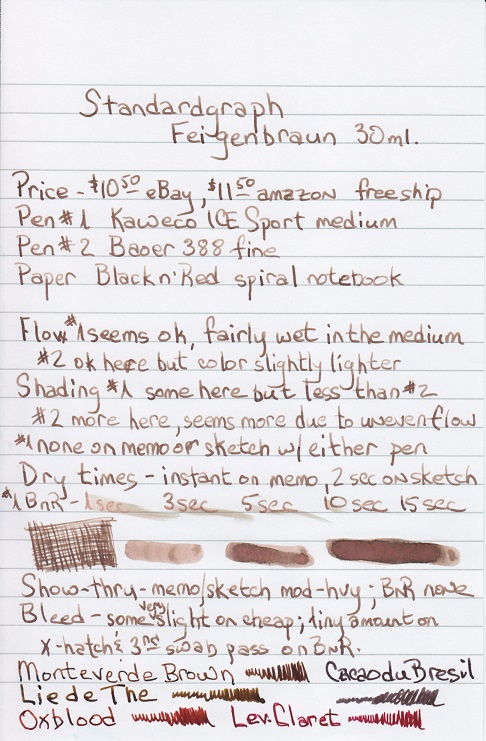 Standardgraph
Feigenbraun 30ml.
Price - $10.50 eBay, $11.50 amazon free ship
Pen #1 Kaweco ICE Sport medium
Pen #2 Baoer 388 fine
Paper Black n' Red spiral notebook
Flow #1 seems ok, fairly wet in the medium
#2 ok here but color slightly lighter
Shading #1 some here but less than #2
#2 more here, seems more due to uneven flow
#1 none on memo or sketch w/ either pen
Dry times - instant on memo, 2 sec on sketch
#1 BnR - 1 sec 3 sec 5 sec 10 sec 15 sec
Show-thru - memo/sketch mod-hvy; BnR none
Bleed - some very slight on cheap; tiny amount on
X-hatch & 3rd swab pass on BnR.
Monteverde Brown Cacao du Bresil
Lie de The
Oxblood Lev. Claret